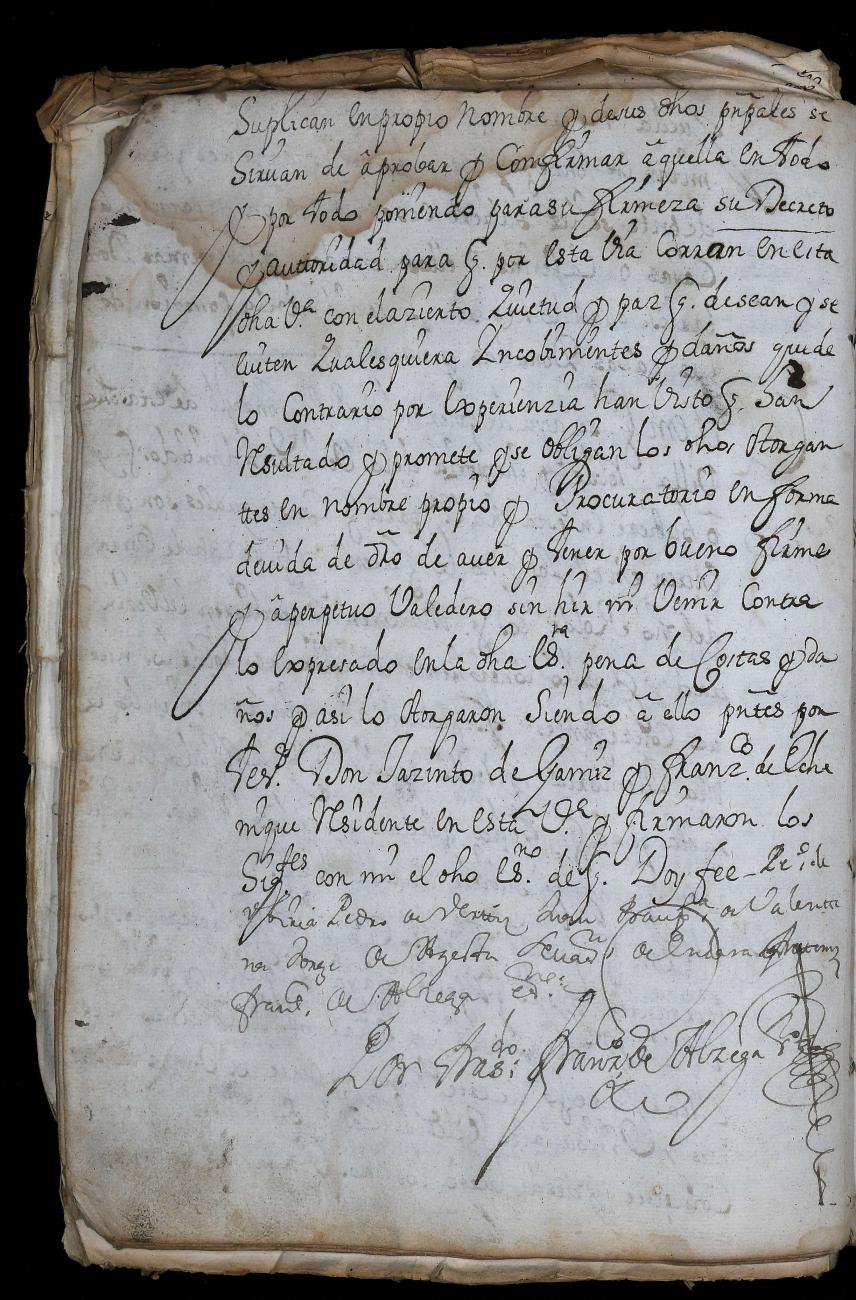 Suplican en propio nombre y de sus dhos prinpales se
siruan de âprobar y Comfirmar âquella en todo
y por todo poniendo para su firmeza su Decreto
y auttoridad para q. por esta Via Corran en esta
dha V.ª con el aziento Quietud y paz q. desean y se
euiten Qualesquiera Yncobinientes y daños que de
lo Contrario por Experienzia han Visto q. San
Resultado y promete y se obligan los dhos otorgan
ttes en nombre propio y Procuratorio en forma
deuida de dro de auer y tener por bueno firme
y âperpetuo Valedero sin hir ni Venir Contra
lo expresado en la dha es.ra pena de Costas y da
ños y asi lo otorgaron Siendo â ello pntes por
tes.os Don Jazinto de Gamiz y franz.co de Eche
nique Residente en esta V.ª y firmaron los
Sig.tes con mi el dho es.no de q. Doy fee
Pedro de Juan de Valenti
na Jorge de de
franc. de Alzega
Por tras.do franz.co de Alzega